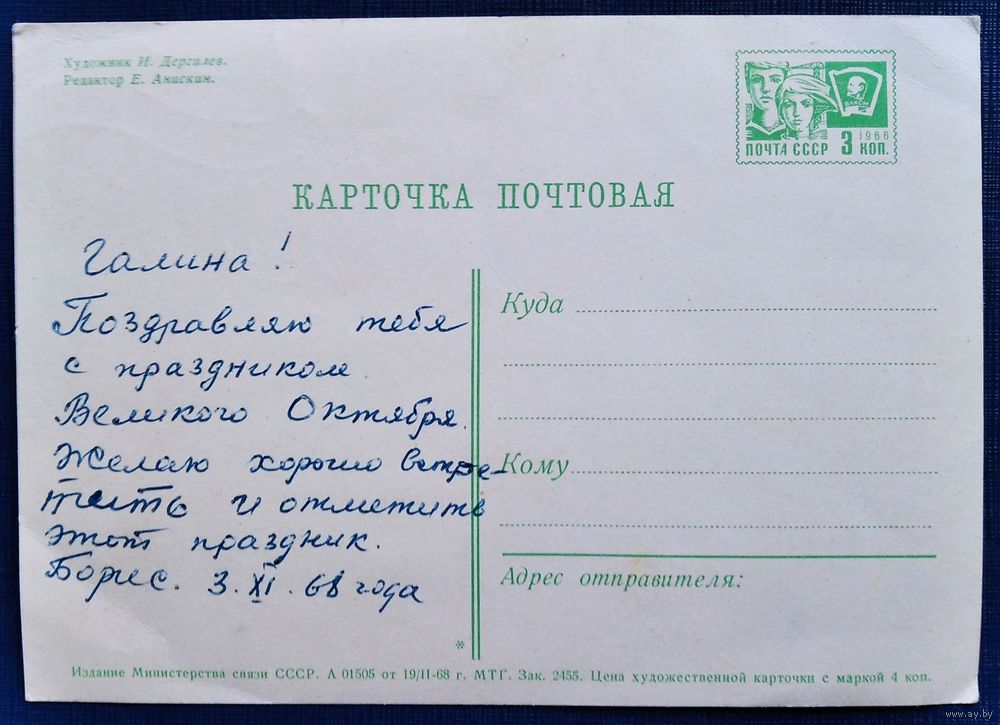 Художник И. Дергилев.
Редактор Е. Анискин.
ВЛКСМ
1966
ПОЧТА СССР 3 КОП.
КАРТОЧКА ПОЧТОВАЯ
Галина!
Поздравляю тебя
с праздником
Великого Октября.
Желаю хорошо встре-
тить и отметить
этот праздник.
Борис. 3. XI. 68 года
Куда
Кому
Адрес отправителя:
*
Издание Министерства связи СССР. А 01505 от 19/II-68 г. МТГ. Зак. 2455. Цена художественной карточки с маркой 4 коп.
www.ay.by